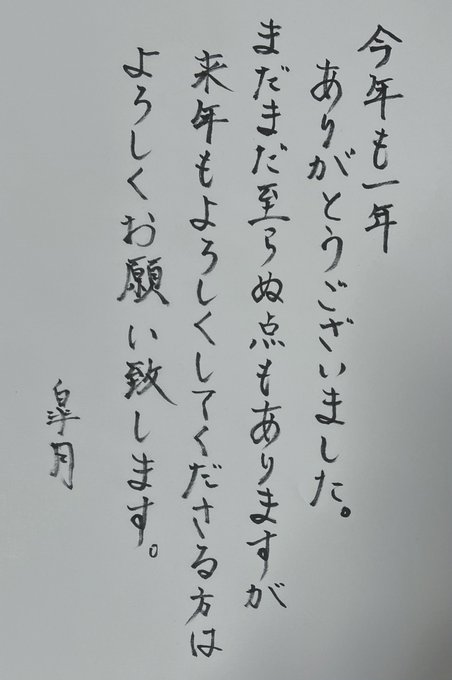 今年も一年
ありがとうございました。
まだまだ至らぬ点もありますが
来年もよろしくしてくださる方は
よろしくお願い致します。
皐月